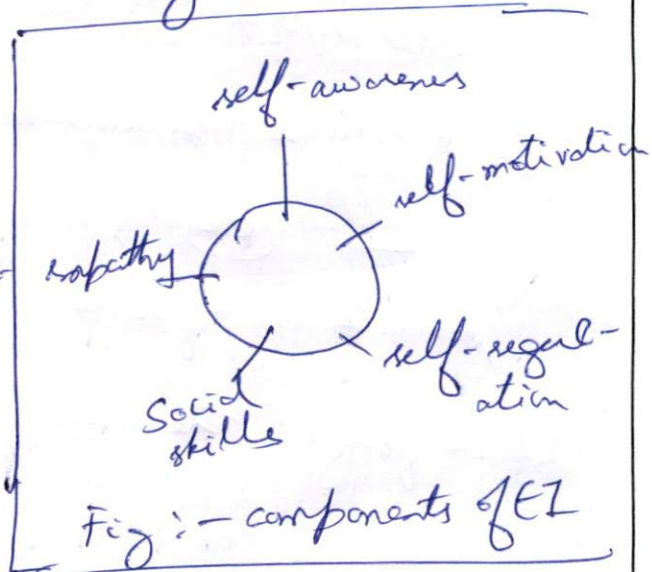 self-awareness
self-motivation
empathy
self-regul-
ation
Social
skills
Fig :- components of EI